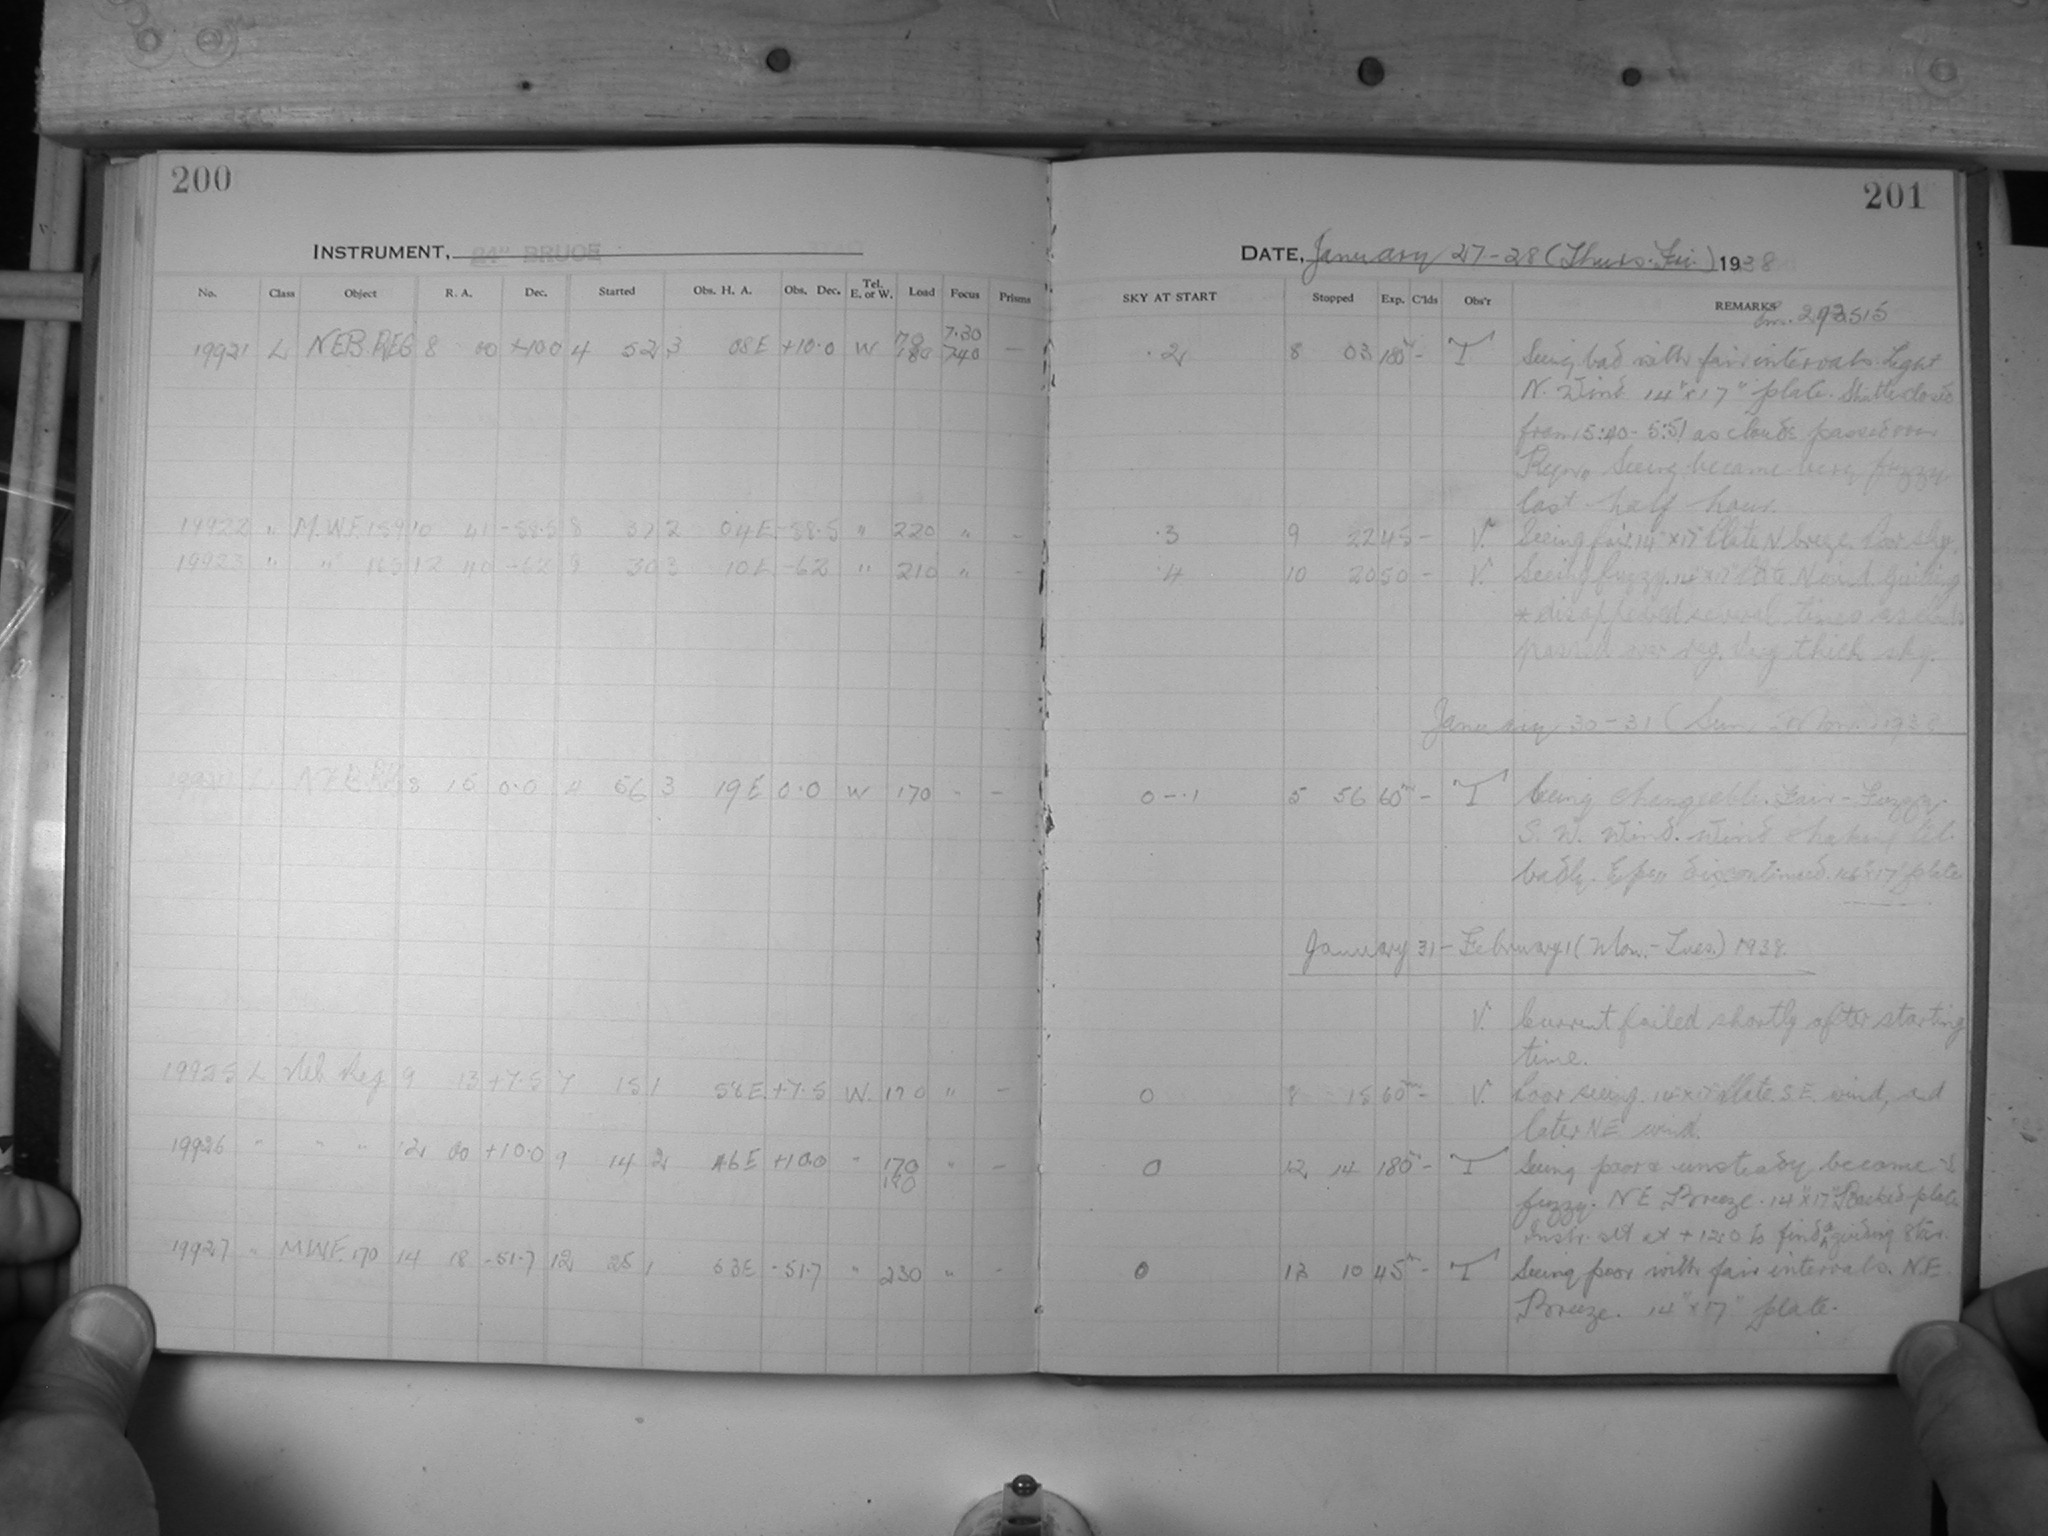 200
INSTRUMENT, 24" BRUCE
No. Class Object R. A. Dec. Started Obs. H. A. Obs. Dec. Tel. E. or W. Load Focus Prisms
19921 L NEB. REG 8 00 +10.0 4 52 3 08E +10.0 W 180 7.30 740 —
19922 " M.W.F. 159 10 41 -58.5 8 37 2 04E -58.5 " 220 " -
19923 " " 12 40 -62 9 30 3 10E -62 " 210 " -
L 8 15 0.0 4 56 3 19E 0.0 W 170 " -
19925 L Neb Reg 9 13 +7.5 7 15 1 58E +7.5 W. 170 " -
19926 " " " 12 00 +10.0 9 14 2 46E +10.0 " 170 " -
19927 " M.W.F. 170 14 18 -51.7 12 25 1 53E -51.7 " 230 " -
201
DATE, January 27-28 (Thurs. Fri.) 1938
SKY AT START Stopped Exp. C'lds Obs'r REMARKS
.2 8 03 180m - T Seeing bad with fair intervals. Light
N. Wind 14"x17" plate. Shutter closed
from 5:40-5:51 as clouds passed over
Region. Seeing became very fuzzy
last half hour.
.3 9 22 45 - V. Seeing fair. 14"x17" Plate. N. breeze. Poor sky.
.4 10 20 50 - V. Seeing fuzzy. 14"x17" Plate N wind. Guiding
* several times as clds
passed over reg. thick sky.
January 30-31 (Sun. - Mon.) 1938
0-.1 5 56 60m - T Seeing changeable. Fair-Fuzzy.
S. W. Wind. Wind shaking tel.
badly. discontinued. plate
January 31 - February 1 (Mon. - Tues.) 1938.
V. Current failed shortly after starting
time.
0 8 15 60m - V. Poor seeing. 14"x17" Plate. S.E. wind, and
later NE wind.
0 12 14 180m - T Seeing poor & unsteady became
fuzzy. NE Breeze. 14"x17" Backed plate
Instr. set at +12.0 to find a guiding star.
0 13 10 45m - T Seeing poor with fair intervals. N.E.
Breeze. 14"x17" plate.